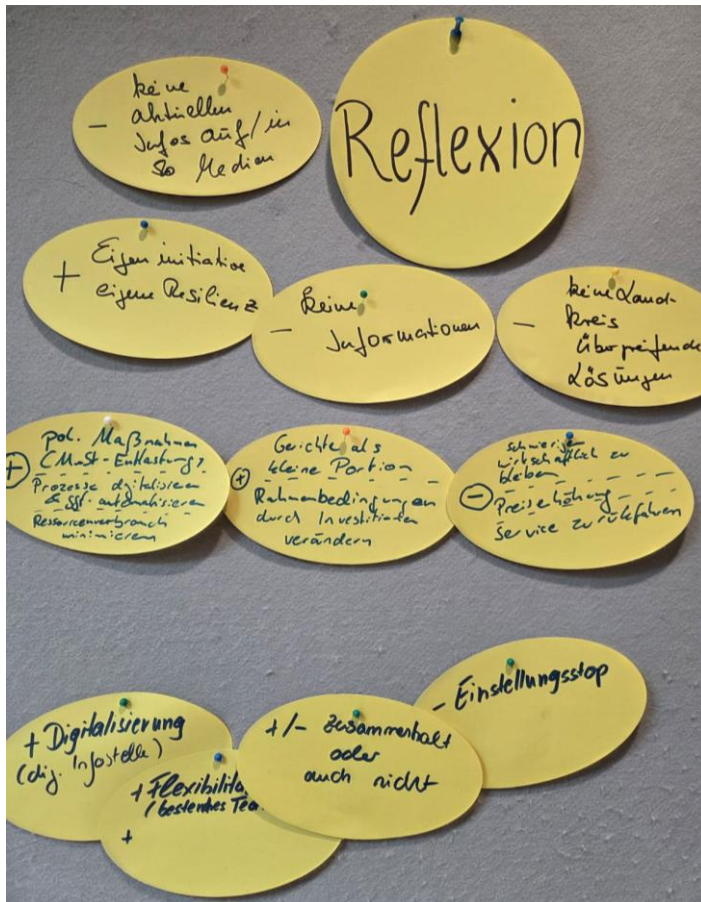 Reflexion
- keine
aktuellen
Infos auf/in
so Medien
+ Eigeninitiative
eigene Resilienz
- keine
Informationen
- keine Land-
kreis
übergreifende
Lösungen
+ pol. Maßnahmen
(MwSt-Entlastung)
Prozesse digitalisieren
& ggf. automatisieren
Ressourcenverbrauch
minimieren
+ Gerichte als
kleine Portion
Rahmenbedingungen
durch Investitionen
verändern
- schwieriger
wirtschaftlich zu
bleiben
Preiserhöhung
Service zurückfahren
- Einstellungsstop
+ Digitalisierung
(dig. Infostelle)
+ Flexibilitä
(bestehhes Tea
+
+/- Zusammenhalt
oder
auch nicht